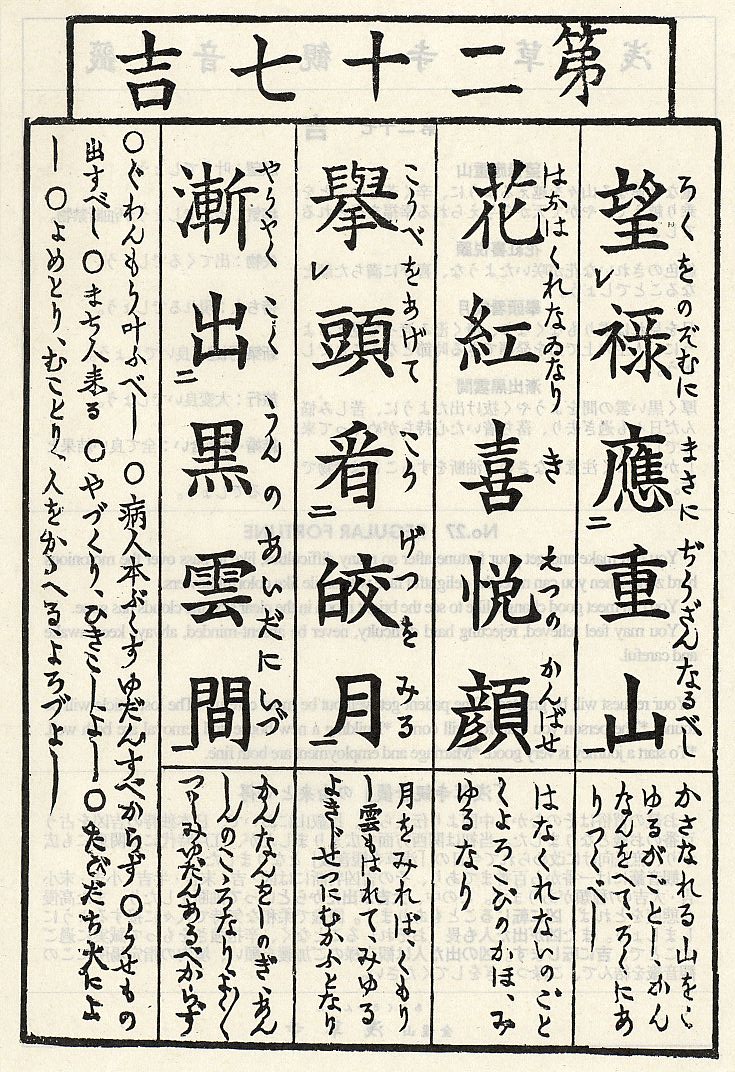 第二十七吉
ろくをのぞむに まさに ぢうざんなるべし
望レ禄應二重山一
かさなれる山をこ
ゆるがごとし、かん
なんをへてろくにあ
りつくべし
はなはくれなゐなり き ゑつの かんばせ
花紅喜悦顔
はなくれないのごと
くよろこびのかほ、み
ゆるなり
こうべをあげて こうげを みる
擧レ頭看二皎月一
月をみれば、くもり
し雲もはれて、みゆる
よきじせつにむかふとなり
やうやく こく うんの あいだにいづ
漸出二黒雲間一
かんなんをしのぎ、あん
しんのころなり、よく
つゝしみゆだんあるべからず
〇ぐわんもう叶ふべし〇病人本ぶくすゆだんすべからず〇うせもの
出すべし〇まち人来る〇やづくり、ひきこしよし〇たびだち大によ
し〇よめとり、むことり、人をかゝへるよろづよし